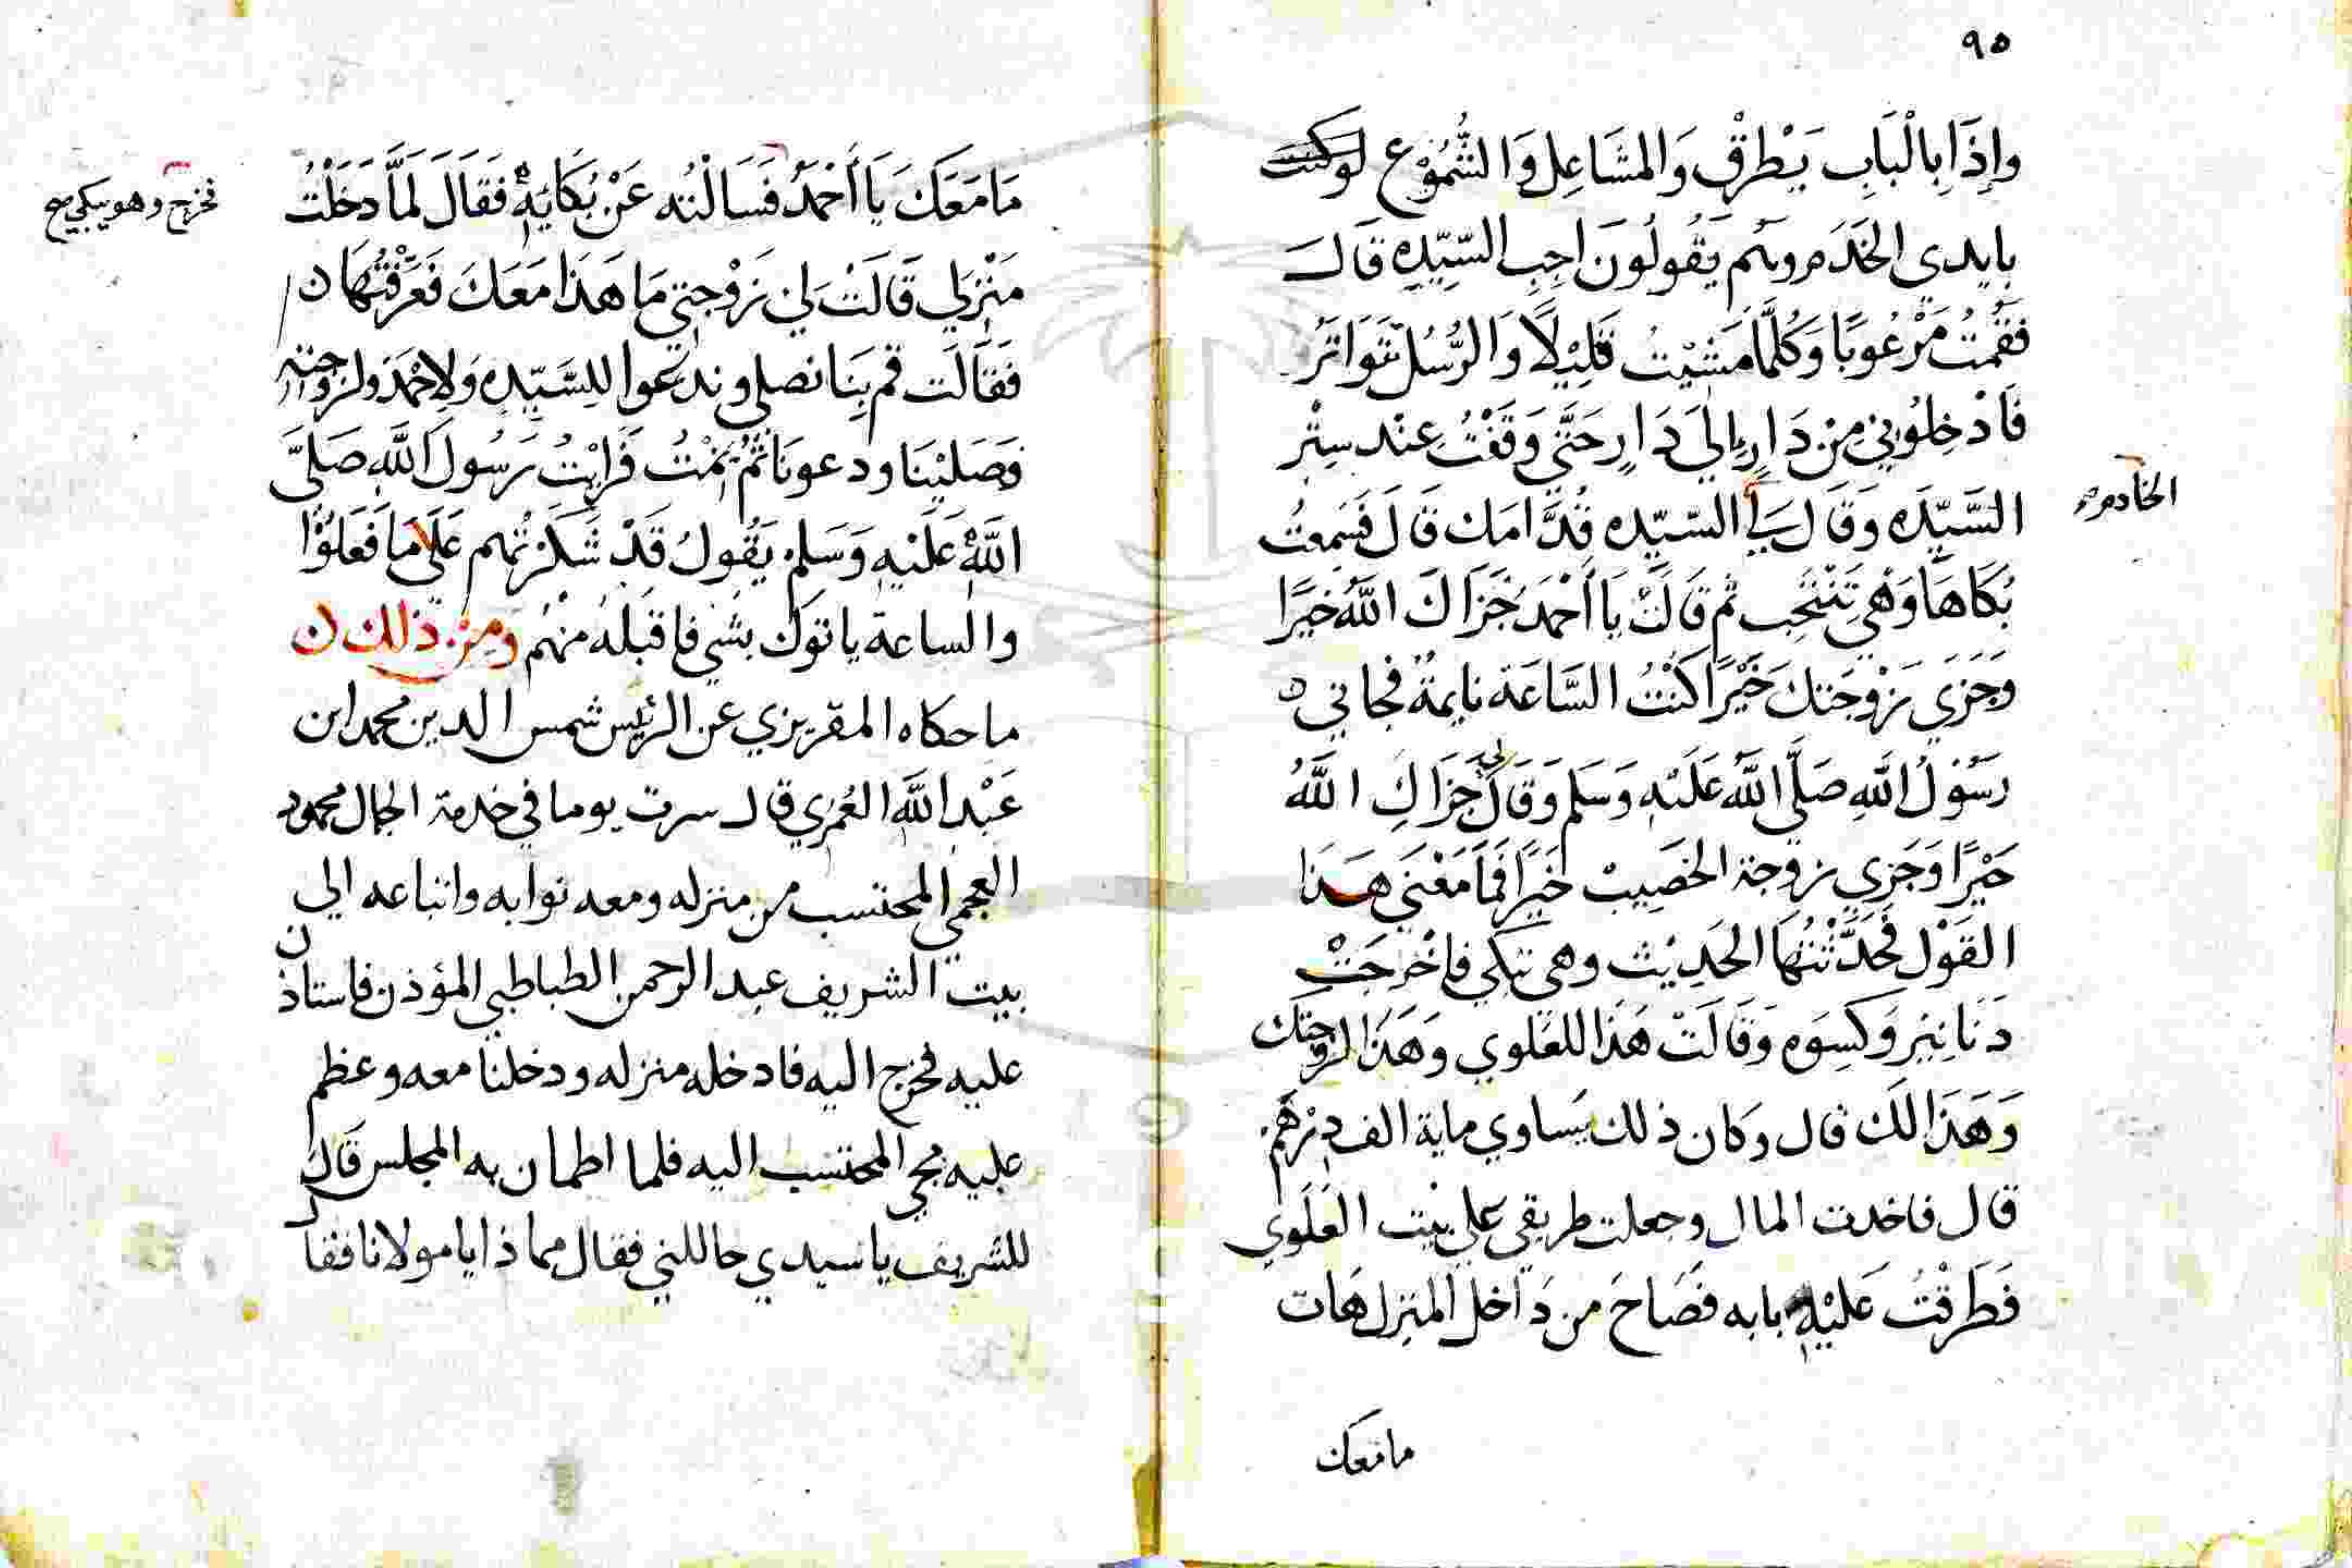 ٩٥
وإِذَا بِالْبَابِ يَطْرُقْ وَالمشَاعِل وَالشُّمُوْع
بايدي الخَدَم وهم يَقُولُونَ اجِبِ السَّيِّدِهِ قَالَ
فَقُمْتُ مَرْعُوبًا وَكُلَّمَا مَشَيْتُ قَلِيْلًا وَالرُّسُل تَتَوَاتَرُ
فَادْخِلُوْنِي مِنْ دَارٍ إلَي دَارٍ حَتَّي وَقَفْتُ عِنْد سِتْر
السَّيِّدَه وَقَال لِي السّيّده قُدَّامَك قَالَ فَسَمِعتُ
الخادم
بُكَاهَا وَهْيَ تَنْتَحِب ثم قَالَتْ يَا أحْمَدُ جَزَاكَ اللَّهُ خَيْرًا
وَجَزَي زَوْجَتكَ خَيْرًا كُنْتُ السَّاعَة نايمةً فجاني
رَسُولُ اللَّهِ صَلَّي اللَّهُ عَلَيْهِ وَسَلم وَقَالَ لي جَزَاكِ اللَّهُ
خَيْرًا وَجَزي زوجة الخَصِيبْ خَيْرًا فَمَا مَعْنَي هَذَا
القَوْل فَحَدَّثْتُهَا الحَدِيْث وهي تبكي فاخْرجَتْ
دَنَانِيْر وَكِسوَه وَقَالَتْ هَذَا للعَلوي وَهَذَا لزوجتك
وَهَذَا لَكَ قال وكان ذلك يَساوي ماية الف دِرْهَم
قال فاخدت المال وجعلت طريقي علي بيْت العَلَوي
فَطَرقْتُ عَليْهِ بابه فصَاحَ من دَاخل المنزل هَات
مامعك
مَا مَعَكَ يَا أحْمَدُ فَسَالْتُه عَنْ بُكَايَهِ فَقَالَ لَمَّا دَخَلْتُ
فخرج وهو يبكي صح
مَنْزِلي قَالَتْ لِي زَوْجتي مَا هَذَا مَعَكَ فَعَرَّفْتُهَا
فَقَالَت قم بِنَا نصلي وندعوا لِلسَّيّدِهِ وَلِاحْمَد ولزوجته
فَصَلَيْنَا ودعونَا ثُمَّ نِمْتُ فَرَايْتُ رَسُولَ اللَّهِ صَلَّي
اللَّهُ عَلَيْهِ وَسَلم يَقُولُ قَدْ شَكَرْتُهم عَلَي مَا فَعَلُوْا
والساعة ياتوك بشي فاقبله منهُم ومن ذلك
ما حكاه المقريزي عن الرئيس شمس الدين محمد ابن
عَبْد اللَّه العُمري قال سرت يوما في خدمة الجمال محمود
العجمي المحتسب من منزله ومعه نوابه واتباعه الي
بيت الشريف عبد الرحمن الطباطبي المؤذن فاستاذن
عليه فخرج اليه فادخله منزله ودخلنا معه وعظم
عليه مجي المحتسب اليه فلما اطمان به المجلس قَالَ
للشريف يا سيدي حاللني فقال مماذا يا مولانا فقال